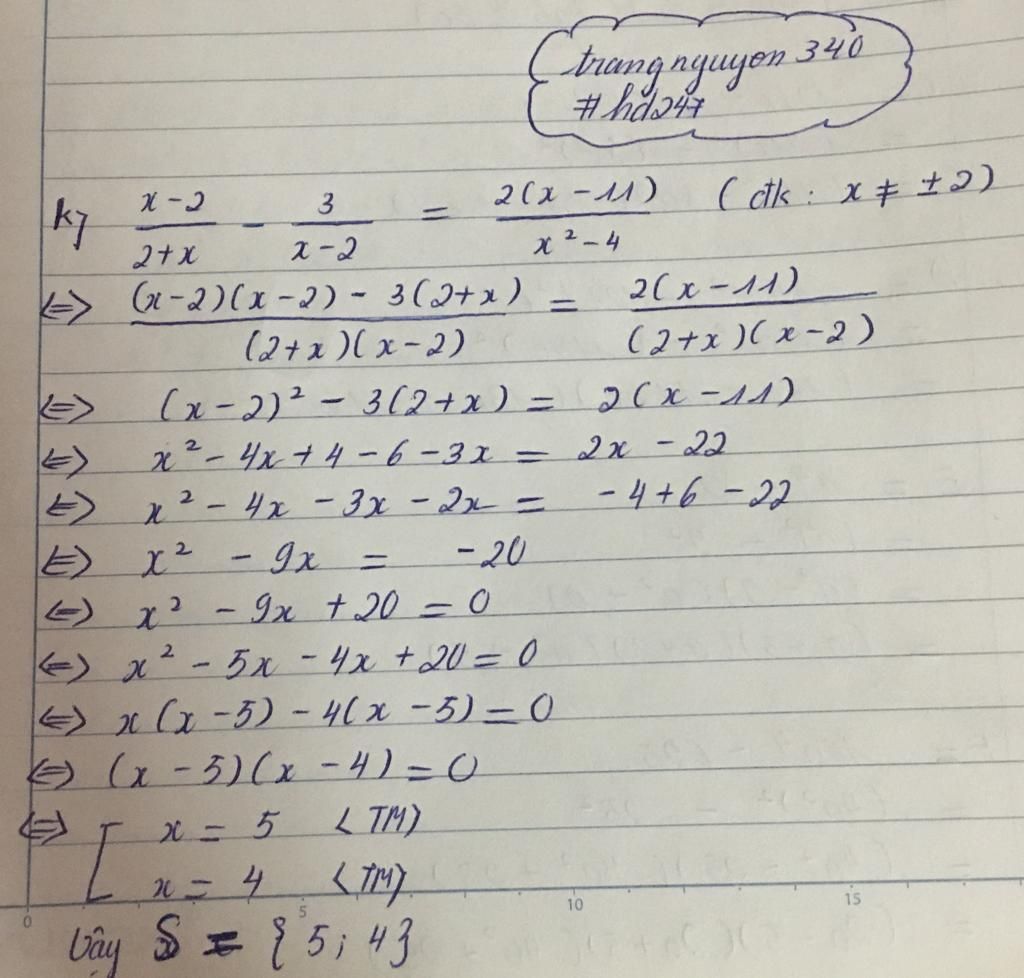 trangnguyen 340
#hd247
k) (x-2)/(2+x) - 3/(x-2) = 2(x-11)/(x²-4) (đk: x ≠ ±2)
<=> ((x-2)(x-2) - 3(2+x))/((2+x)(x-2)) = 2(x-11)/((2+x)(x-2))
<=> (x-2)² - 3(2+x) = 2(x-11)
<=> x² - 4x + 4 - 6 - 3x = 2x - 22
<=> x² - 4x - 3x - 2x = -4+6-22
<=> x² - 9x = -20
<=> x² - 9x + 20 = 0
<=> x² - 5x - 4x + 20 = 0
<=> x(x-5) - 4(x-5) = 0
<=> (x-5)(x-4) = 0
<=> [ x = 5 <TM)
x = 4 <TM)
0 5 10 15
Vậy S = {5; 4}